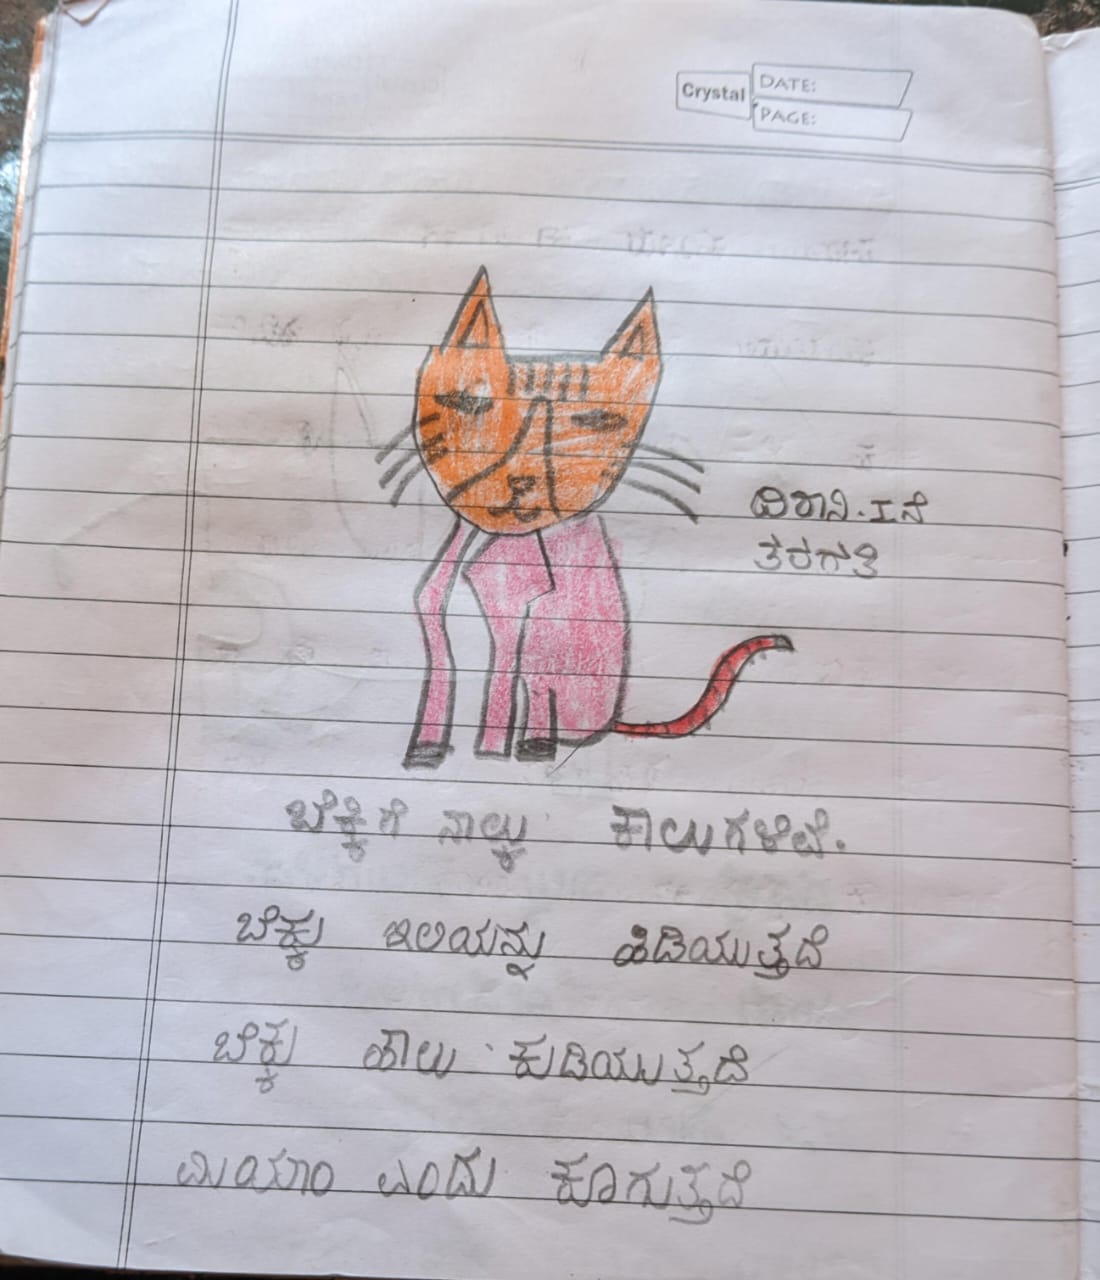 Crystal
DATE:
PAGE:
ವಿರಾವಿ. I ನೆ
ತರಗತಿ
ಬೆಕ್ಕಿಗೆ ನಾಲ್ಕು ಕಾಲುಗಳಿವೆ.
ಬೆಕ್ಕು ಇಲಿಯನ್ನು ಹಿಡಿಯುತ್ತದೆ
ಬೆಕ್ಕು ಹಾಲು ಕುಡಿಯುತ್ತದೆ
ಮಿಯಾಂ ಎಂದು ಕೂಗುತ್ತದೆ